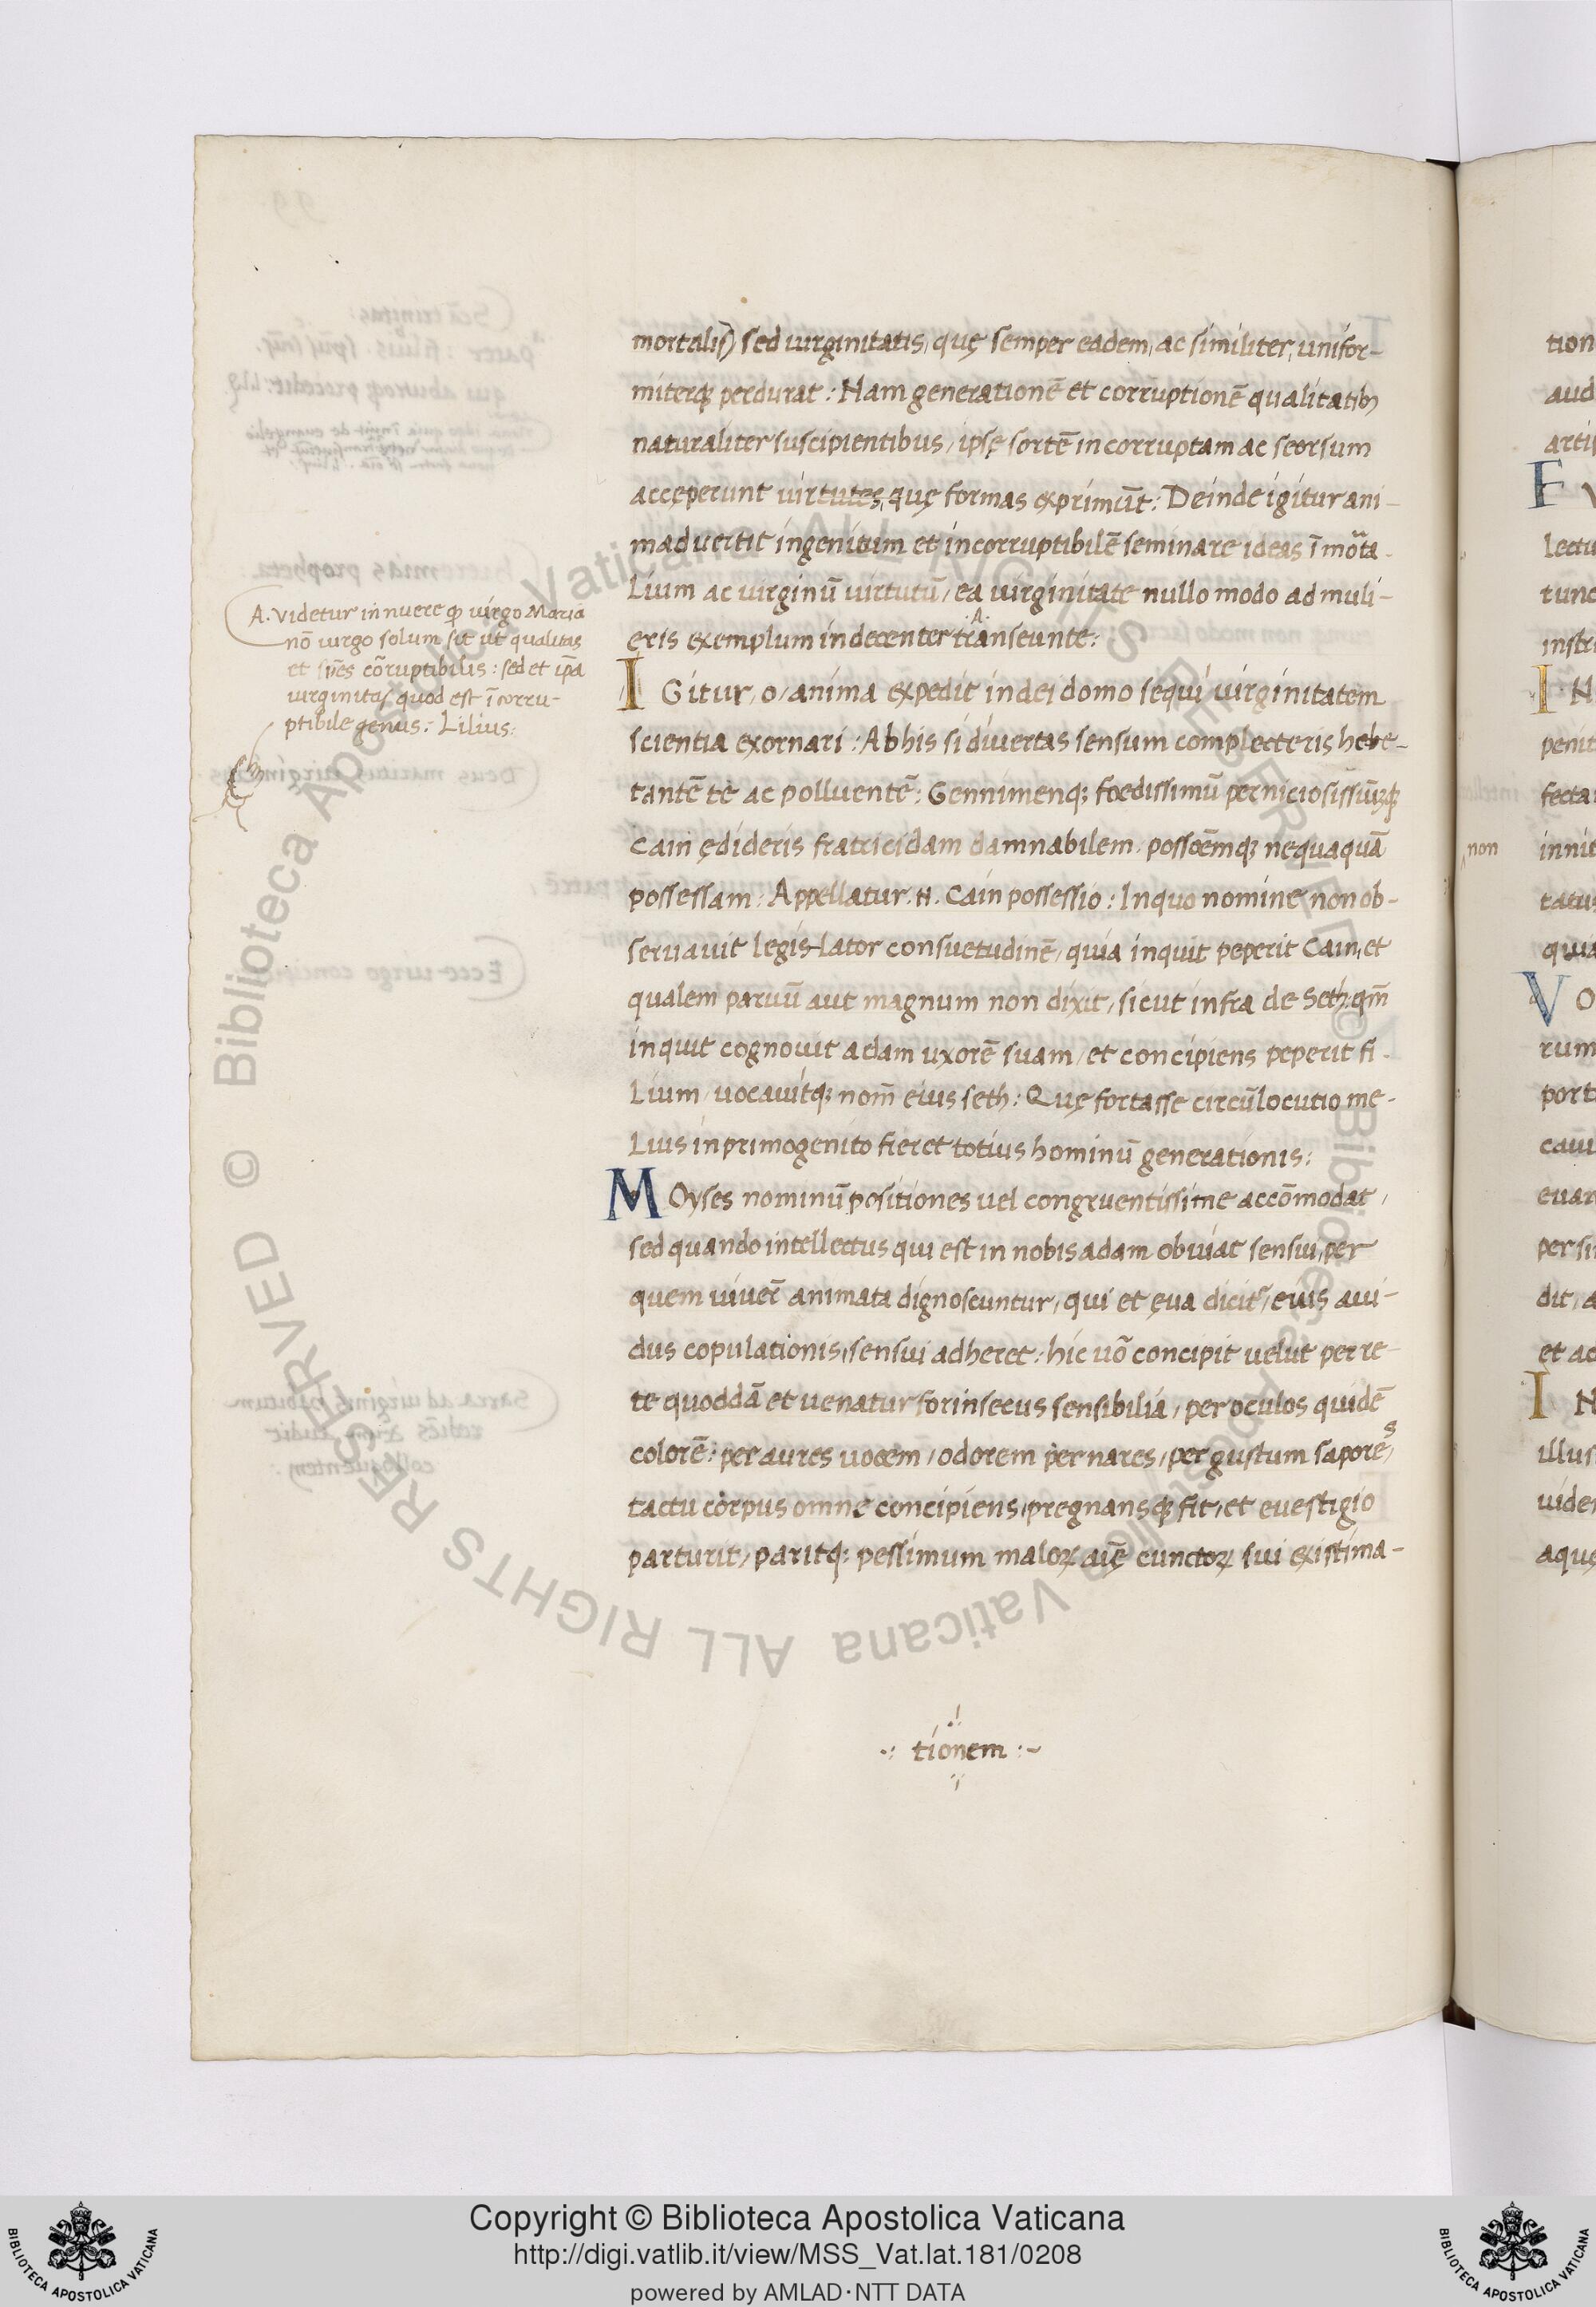 mortalis) sed uirginitatis, quę semper eadem, ac similiter, unifor-
miterq; perdurat: Nam generationē et corruptionē qualitatib;
naturaliter suscipientibus, ipsę sortē incorruptam ac seorsum
accęperunt uirtutes, quę formas exprimūt: Deinde igitur ani-
maduertit ingenitum et incorruptibilē seminare ideas ī mōta-
Lium ac uirginū uirtutū, ea uirginitate nullo modo ad muli-
eris exemplum indecenter transeunte:
.A.
A. Videtur innuere ꝙ uirgo Maria
nō uirgo solum sit ut qualitas
et sp̄es cōruptibilis: sed et ip̄a
uirginitas quod est ī corru-
ptibile genus: Lilius:
IGitur, o, anima expedit in dei domo sequi uirginitatem
scientia exornari: Ab his si diuertas sensum complecteris hebe-
tantē te ac polluentē: Gennimenq; foedissimū perniciosissimūq;
Cain ędideris fratricidam damnabilem. possoēmq; nequaquā
possessam: Appellatur .N. Cain possessio: In quo nomine non ob-
seruauit legis-lator consuetudinē, quia inquit peperit Cain, et
qualem paruū aut magnum non dixit, sicut infra de Seth. qm̄
inquit cognouit adam uxorē suam, et concipiens peperit fi-
Lium, uocauitq; nom̄ eius seth: Quę fortasse circūlocutio me-
Lius in primogenito fieret totius hominū generationis:
MOyses nominū positiones uel congruentissime accōmodat,
sed quando intellectus qui est in nobis adam obuiat sensui, per
quem uiuer̄ animata dignoscuntur, qui et ęua dicit̄, eius aui-
dus copulationis, sensui adheret: hic uō concipit uelut per re-
te quoddā et uenatur forinsecus sensibilia, per oculos quidē
colorē: per aures uocem, odorem per nares, per gustum saporēs,
tactu corpus omne concipiens, pregnansq; fit, et euestigio
parturit, paritq; pessimum maloꝝ aīę cunctoꝝ sui existima-
.: tionem :~
non
Copyright © Biblioteca Apostolica Vaticana
http://digi.vatlib.it/view/MSS_Vat.lat.181/0208
powered by AMLAD·NTT DATA